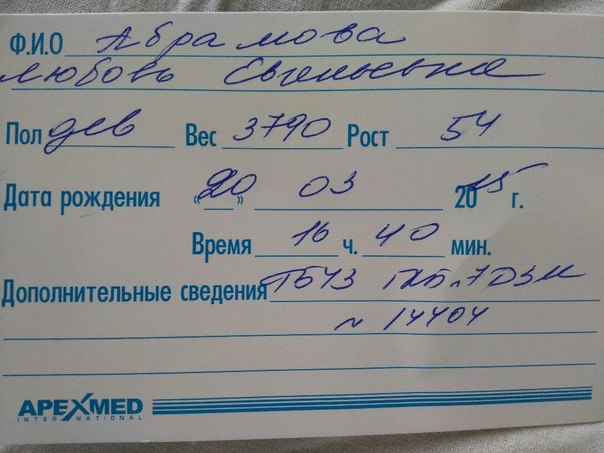 Ф.И.О Абрамова
Любовь Евгеньевна
Пол дев Вес 3790 Рост 54
Дата рождения «20» 03 2015 г.
Время 16 ч. 40 мин.
Дополнительные сведения ГБУЗ ГКБ №7 ДЗМ
№ 14404
APEXMED
INTERNATIONAL